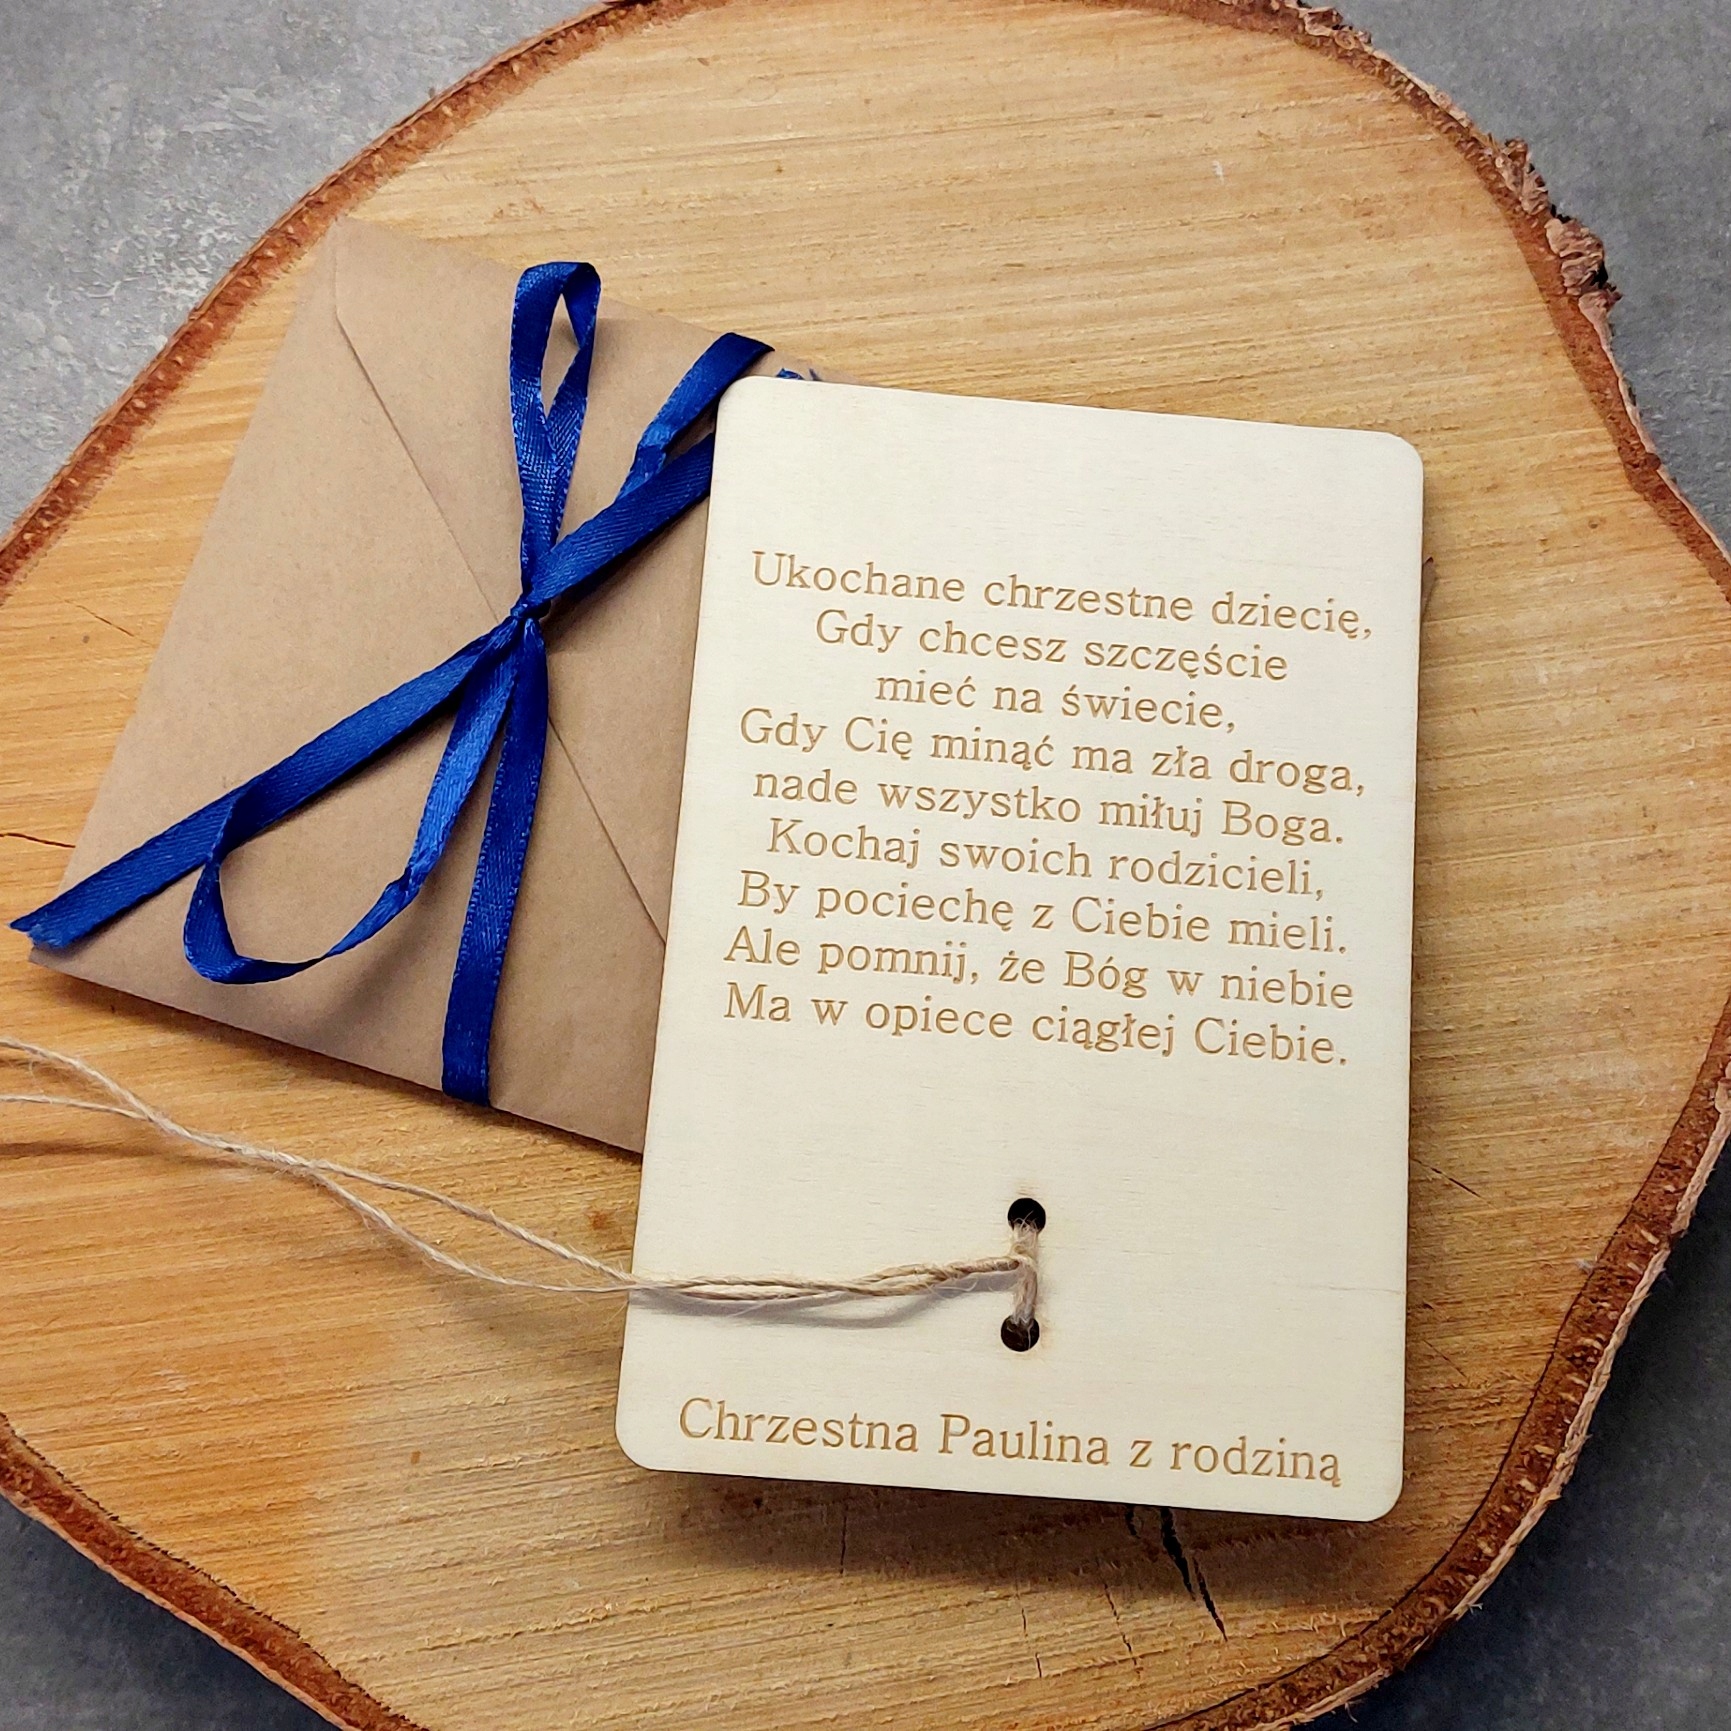 Ukochane chrzestne dziecię,
Gdy chcesz szczęście
mieć na świecie,
Gdy Cię minąć ma zła droga,
nade wszystko miłuj Boga.
Kochaj swoich rodzicieli,
By pociechę z Ciebie mieli.
Ale pomnij, że Bóg w niebie
Ma w opiece ciągłej Ciebie.
Chrzestna Paulina z rodziną